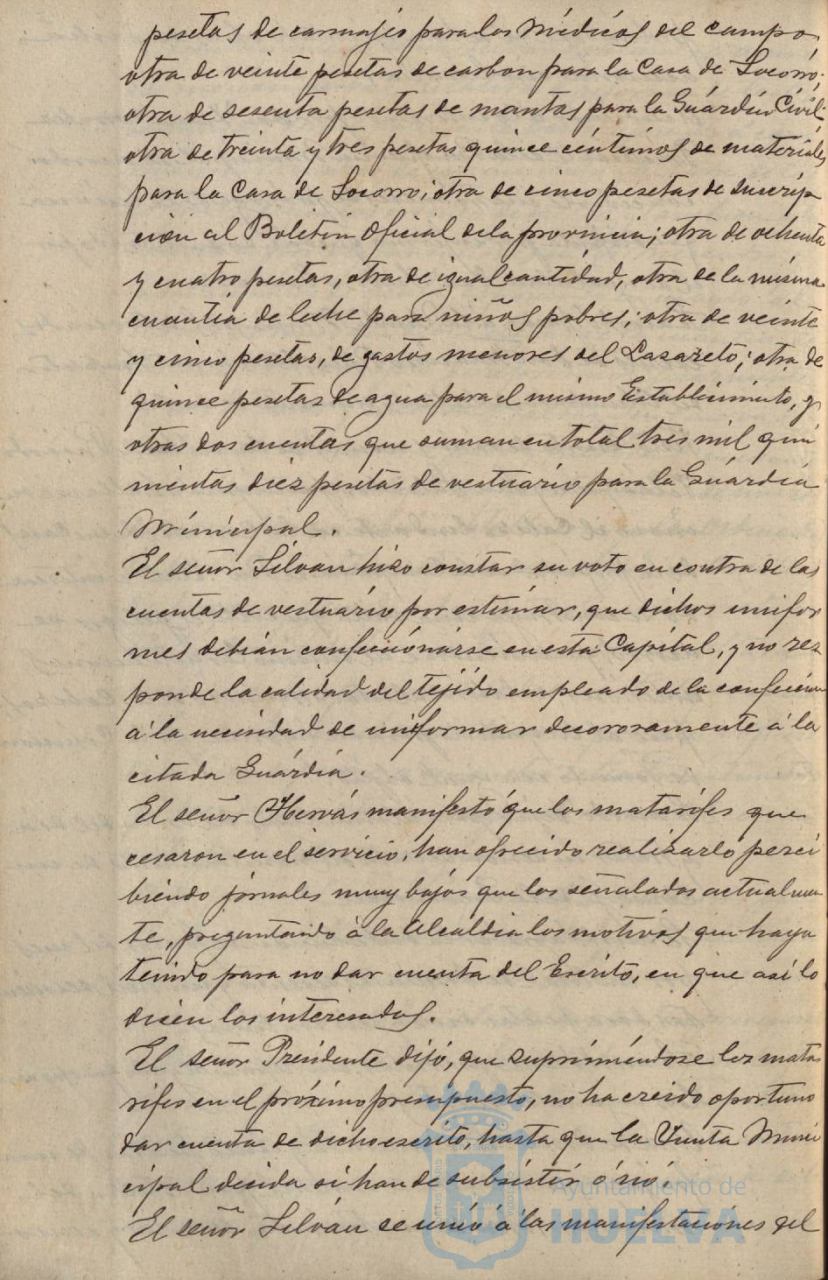 pesetas de carruajes para los Médicos del campo,
otra de veinte pesetas de carbon para la Casa de Socorro;
otra de sesenta pesetas de mantas para la Guárdia Civil
otra de treinta y tres pesetas quince céntimos de materiales
para la Casa de Socorro; otra de cinco pesetas de suscrip
cion al Boletin Oficial de la provincia; otra de ochenta
y cuatro pesetas, otra de igual cantidad, otra de la misma
cuantia de leche para niños pobres; otra de veinte
y cinco pesetas, de gastos menores del Lazareto; otra de
quince pesetas de agua para el mismo Establecimiento, y
otras dos cuentas que suman en total tres mil qui
nientas diez pesetas de vestuário para la Guárdia
Municipal.
El señor Silván hizo constar su voto en contra de las
cuentas de vestuário por estimar, que dichos unifor
mes debián confeccionárse en esta Capital, y no res
ponde la calidad del tejido empleado de la confección
á la necesidad de uniformar decorosamente á la
citada Guárdia.
El señor Hervás manifestó que los matarifes que
cesaron en el servicio, han ofrecido realizarlo perci
biendo jornales muy bajos que los señalados actualmen
te, preguntando á la Alcaldia los motivos que haya
tenido para no dar cuenta del Escrito, en que asi lo
dicen los interesados.
El señor Presidente dijó, que suprimiéndose los mata
rifes en el próximo presupuesto, no ha creido oportuno
dar cuenta de dicho escrito, hasta que la Junta Muni
cipal decida si han de subsistir ó nó.
El señor Silván se unió á las manifestaciones del
Ayuntamiento de
HUELVA